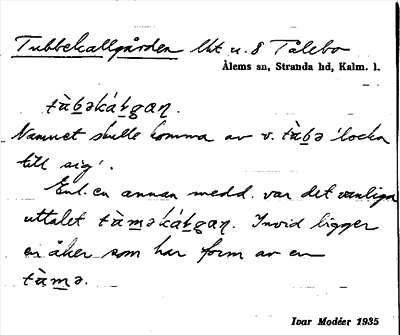 Tubbekallgården lht u. 8 Tålebo
Ålems sn, Stranda hd, Kalm. l.
tàb̲əkát̲gaɳ.
Namnet skulle komma av v. tàb̲ə 'locka
till sig'.
Enl. en annan medd. var det vanliga
uttalet tàm̲əkát̲gaɳ. Invid ligger
en åker som har form av en
tàm̲ə.
Ivar Modéer 1935